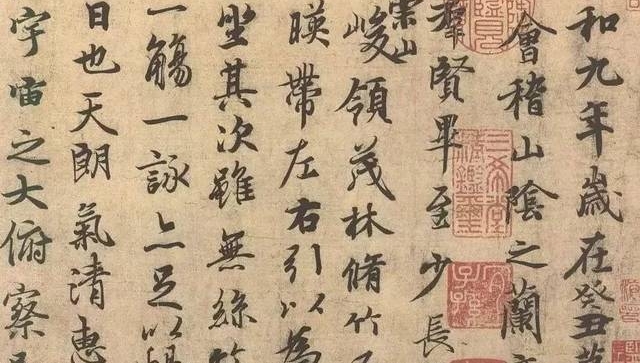 和九年歲在癸丑
會稽山陰之蘭
羣賢畢至少長
崇山
峻領茂林脩竹
暎帶左右引以為
坐其次雖無絲
一觴一詠亦足以
日也天朗氣清惠
宇宙之大俯察
三希堂精鑑璽
宜子孫